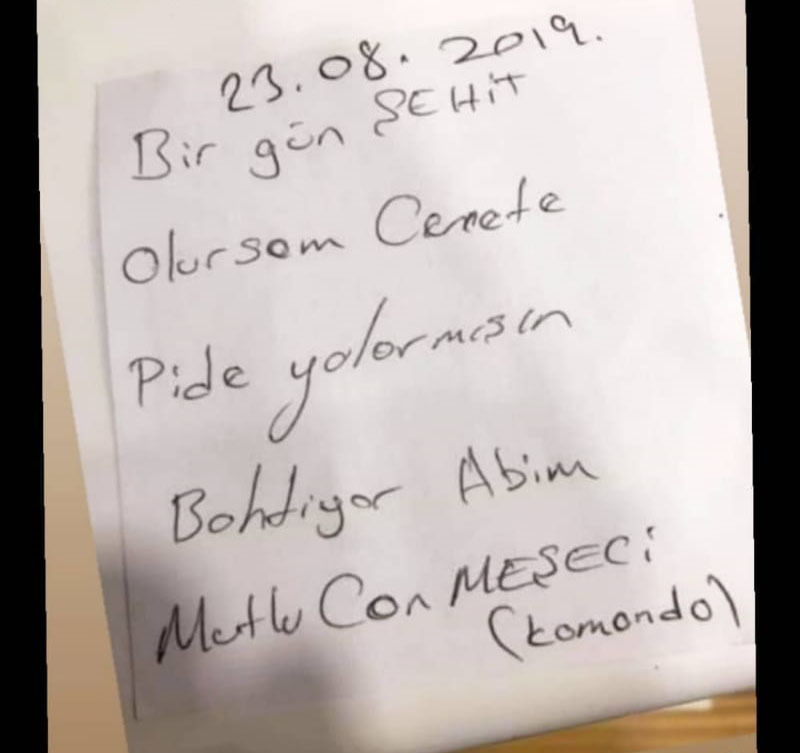 23.08.2019.
Bir gün ŞEHiT
Olursam Cenete
Pide yolarmısın
Bahtiyar Abim
Mutlu Can MEŞECi
(komando)